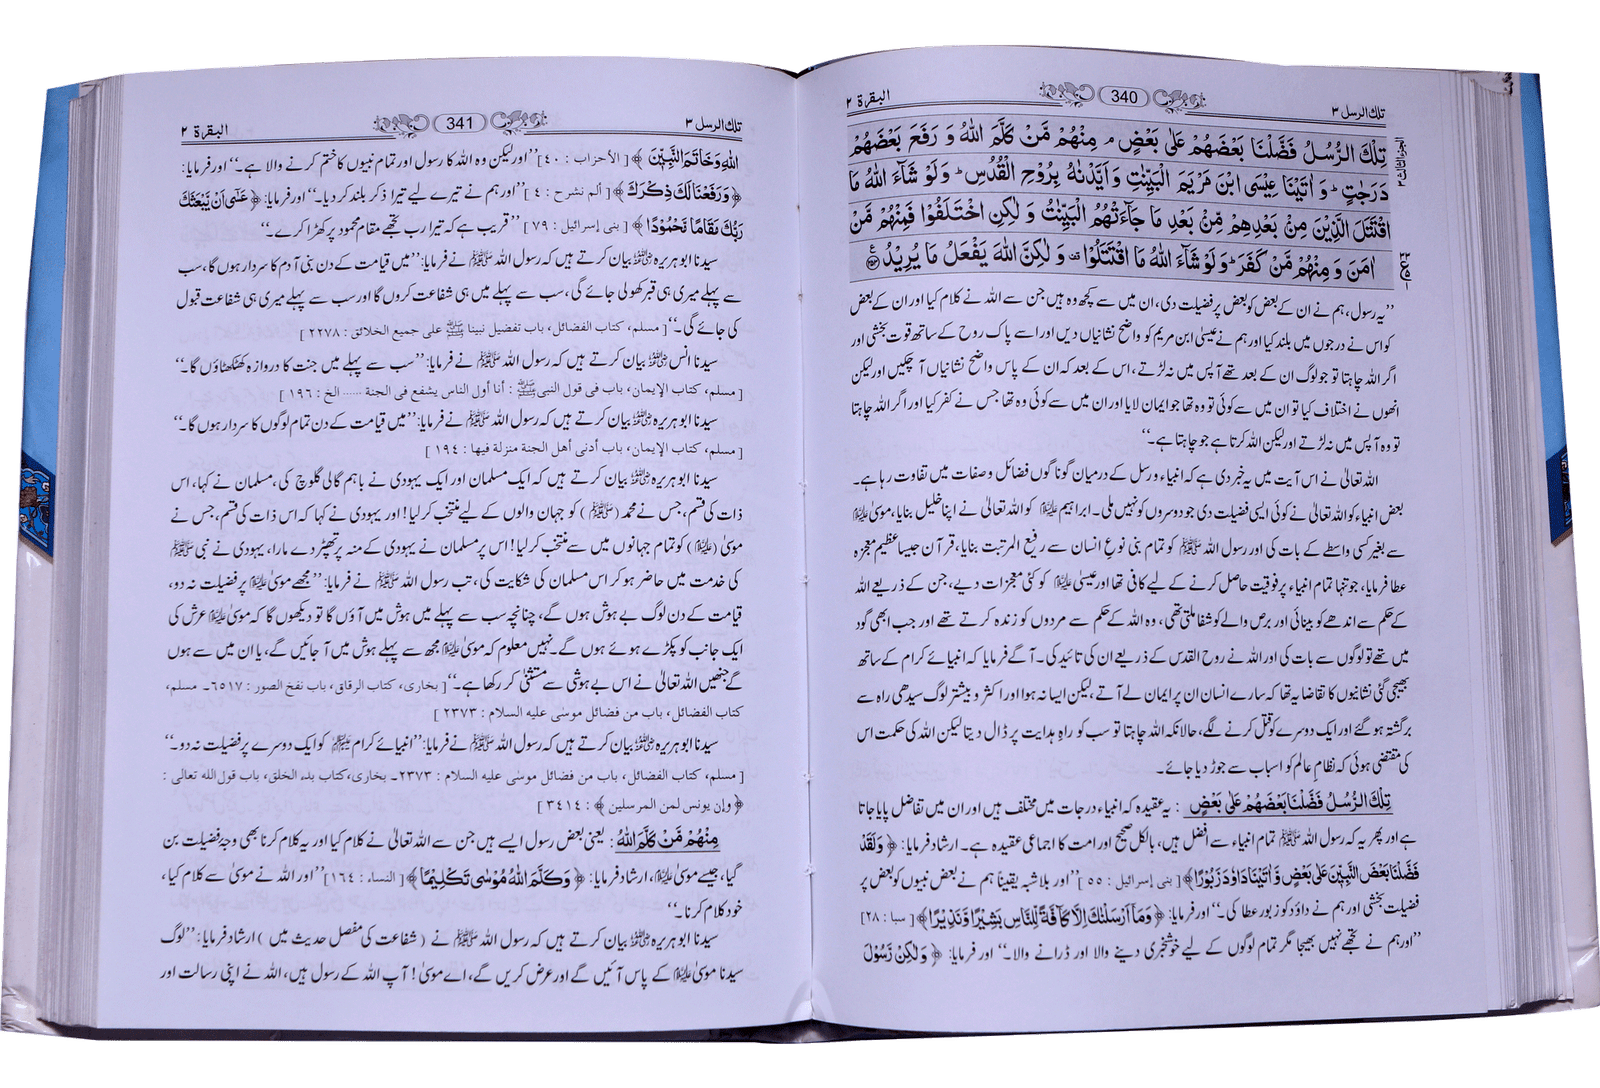 تلك الرسل ٣
340
البقرة ٢
الجزء الثالث ٣
تِلْكَ الرُّسُلُ فَضَّلْنَا بَعْضَهُمْ عَلٰى بَعْضٍ ۘ مِنْهُمْ مَّنْ كَلَّمَ اللّٰهُ وَ رَفَعَ بَعْضَهُمْ
دَرَجٰتٍ ؕ وَ اٰتَيْنَا عِيْسَى ابْنَ مَرْيَمَ الْبَيِّنٰتِ وَ اَيَّدْنٰهُ بِرُوْحِ الْقُدُسِ ؕ وَلَوْ شَآءَ اللّٰهُ مَا
اقْتَتَلَ الَّذِيْنَ مِنْۢ بَعْدِهِمْ مِّنْۢ بَعْدِ مَا جَآءَتْهُمُ الْبَيِّنٰتُ وَ لٰكِنِ اخْتَلَفُوْا فَمِنْهُمْ مَّنْ
اٰمَنَ وَ مِنْهُمْ مَّنْ كَفَرَ ؕ وَلَوْ شَآءَ اللّٰهُ مَا اقْتَتَلُوْا ۟ وَ لٰكِنَّ اللّٰهَ يَفْعَلُ مَا يُرِيْدُ ﴿٢٥٣﴾
”یہ رسول، ہم نے ان کے بعض کو بعض پر فضیلت دی، ان میں سے کچھ وہ ہیں جن سے اللہ نے کلام کیا اور ان کے بعض
کو اس نے درجوں میں بلند کیا اور ہم نے عیسیٰ ابن مریم کو واضح نشانیاں دیں اور اسے پاک روح کے ساتھ قوت بخشی اور
اگر اللہ چاہتا تو جو لوگ ان کے بعد تھے آپس میں نہ لڑتے، اس کے بعد کہ ان کے پاس واضح نشانیاں آ چکیں اور لیکن
انھوں نے اختلاف کیا تو ان میں سے کوئی تو وہ تھا جو ایمان لایا اور ان میں سے کوئی وہ تھا جس نے کفر کیا اور اگر اللہ چاہتا
تو وہ آپس میں نہ لڑتے اور لیکن اللہ کرتا ہے جو چاہتا ہے۔“
اللہ تعالیٰ نے اس آیت میں یہ خبر دی ہے کہ انبیاء و رسل کے درمیان گوناگوں فضائل و صفات میں تفاوت رہا ہے۔
بعض انبیاء کو اللہ تعالیٰ نے کوئی ایسی فضیلت دی جو دوسروں کو نہیں ملی۔ ابراہیم علیہ السلام کو اللہ تعالیٰ نے اپنا خلیل بنایا، موسیٰ علیہ السلام
سے بغیر کسی واسطے کے بات کی اور رسول اللہ ﷺ کو تمام بنی نوع انسان سے رفیع المرتبت بنایا، قرآن جیسا عظیم معجزہ
عطا فرمایا، جو تنہا تمام انبیاء پر فوقیت حاصل کرنے کے لیے کافی تھا اور عیسیٰ علیہ السلام کو کئی معجزات دیے، جن کے ذریعے اللہ
کے حکم سے اندھے کو بینائی اور برص والے کو شفا ملتی تھی، وہ اللہ کے حکم سے مردوں کو زندہ کرتے تھے اور جب ابھی گود
میں تھے تو لوگوں سے بات کی اور اللہ نے روح القدس کے ذریعے ان کی تائید کی۔ آگے فرمایا کہ انبیائے کرام کے ساتھ
بھیجی گئی نشانیوں کا تقاضا یہ تھا کہ سارے انسان ان پر ایمان لے آتے، لیکن ایسا نہ ہوا اور اکثر و بیشتر لوگ سیدھی راہ سے
برگشتہ ہو گئے اور ایک دوسرے کو قتل کرنے لگے، حالانکہ اللہ چاہتا تو سب کو راہ ہدایت پر ڈال دیتا لیکن اللہ کی حکمت اس
کی مقتضی ہوئی کہ نظام عالم کو اسباب سے جوڑ دیا جائے۔
تِلْكَ الرُّسُلُ فَضَّلْنَا بَعْضَهُمْ عَلٰى بَعْضٍ : یہ عقیدہ کہ انبیاء درجات میں مختلف ہیں اور ان میں تفاضل پایا جاتا
ہے اور پھر یہ کہ رسول اللہ ﷺ تمام انبیاء سے افضل ہیں، بالکل صحیح اور امت کا اجماعی عقیدہ ہے۔ ارشاد فرمایا: ﴿ وَلَقَدْ
فَضَّلْنَا بَعْضَ النَّبِيّٖنَ عَلٰى بَعْضٍ وَّ اٰتَيْنَا دَاوٗدَ زَبُوْرًا ﴾ [ بنی إسرائیل : ٥٥ ] ”اور بلاشبہ یقیناً ہم نے بعض نبیوں کو بعض پر
فضیلت بخشی اور ہم نے داؤد کو زبور عطا کی۔“ اور فرمایا: ﴿ وَمَآ اَرْسَلْنٰكَ اِلَّا كَآفَّةً لِّلنَّاسِ بَشِيْرًا وَّ نَذِيْرًا ﴾ [ سبا : ٢٨ ]
”اور ہم نے تجھے نہیں بھیجا مگر تمام لوگوں کے لیے خوشخبری دینے والا اور ڈرانے والا۔“ اور فرمایا: ﴿ وَ لٰكِنْ رَّسُوْلَ
تلك الرسل ٣
341
البقرة ٢
اللّٰهِ وَ خَاتَمَ النَّبِيّٖنَ ﴾ [ الأحزاب : ٤٠ ] ”اور لیکن وہ اللہ کا رسول اور تمام نبیوں کا ختم کرنے والا ہے۔“ اور فرمایا:
﴿ وَ رَفَعْنَا لَكَ ذِكْرَكَ ﴾ [ ألم نشرح : ٤ ] ”اور ہم نے تیرے لیے تیرا ذکر بلند کر دیا۔“ اور فرمایا: ﴿ عَسٰٓى اَنْ يَّبْعَثَكَ
رَبُّكَ مَقَامًا مَّحْمُوْدًا ﴾ [ بنی إسرائیل : ٧٩ ] ”قریب ہے کہ تیرا رب تجھے مقام محمود پر کھڑا کرے۔“
سیدنا ابوہریرہ رضی اللہ عنہ بیان کرتے ہیں کہ رسول اللہ ﷺ نے فرمایا: ”میں قیامت کے دن بنی آدم کا سردار ہوں گا، سب
سے پہلے میری ہی قبر کھولی جائے گی، سب سے پہلے میں ہی شفاعت کروں گا اور سب سے پہلے میری ہی شفاعت قبول
کی جائے گی۔“ [ مسلم، کتاب الفضائل، باب تفضیل نبینا ﷺ علی جمیع الخلائق : ٢٢٧٨ ]
سیدنا انس رضی اللہ عنہ بیان کرتے ہیں کہ رسول اللہ ﷺ نے فرمایا: ”سب سے پہلے میں جنت کا دروازہ کھٹکھٹاؤں گا۔“
[ مسلم، کتاب الإیمان، باب فی قول النبی ﷺ : أنا أول الناس یشفع فی الجنة ..... الخ : ١٩٦ ]
سیدنا ابوہریرہ رضی اللہ عنہ بیان کرتے ہیں کہ رسول اللہ ﷺ نے فرمایا: ”میں قیامت کے دن تمام لوگوں کا سردار ہوں گا۔“
[ مسلم، کتاب الإیمان، باب أدنی أهل الجنة منزلة فیها : ١٩٤ ]
سیدنا ابوہریرہ رضی اللہ عنہ بیان کرتے ہیں کہ ایک مسلمان اور ایک یہودی نے باہم گالی گلوچ کی، مسلمان نے کہا، اس
ذات کی قسم، جس نے محمد (ﷺ) کو جہان والوں کے لیے منتخب کر لیا! اور یہودی نے کہا کہ اس ذات کی قسم، جس نے
موسیٰ (علیہ السلام) کو تمام جہانوں میں سے منتخب کر لیا! اس پر مسلمان نے یہودی کے منہ پر تھپڑ دے مارا، یہودی نے نبی ﷺ
کی خدمت میں حاضر ہو کر اس مسلمان کی شکایت کی، تب رسول اللہ ﷺ نے فرمایا: ”مجھے موسیٰ علیہ السلام پر فضیلت نہ دو،
قیامت کے دن لوگ بے ہوش ہوں گے، چنانچہ سب سے پہلے میں ہوش میں آؤں گا تو دیکھوں گا کہ موسیٰ علیہ السلام عرش کی
ایک جانب کو پکڑے ہوئے ہوں گے۔ نہیں معلوم کہ موسیٰ علیہ السلام مجھ سے پہلے ہوش میں آ جائیں گے، یا ان میں سے ہوں
گے جنھیں اللہ تعالیٰ نے اس بے ہوشی سے مستثنیٰ کر رکھا ہے۔“ [ بخاری، کتاب الرقاق، باب نفخ الصور : ٦٥١٧۔ مسلم،
کتاب الفضائل، باب من فضائل موسی علیه السلام : ٢٣٧٣ ]
سیدنا ابوہریرہ رضی اللہ عنہ بیان کرتے ہیں کہ رسول اللہ ﷺ نے فرمایا: ”انبیائے کرام علیہم السلام کو ایک دوسرے پر فضیلت نہ دو۔“
[ مسلم، کتاب الفضائل، باب من فضائل موسی علیه السلام : ٢٣٧٣۔ بخاری، کتاب بدء الخلق، باب قول الله تعالی :
﴿ وإن یونس لمن المرسلین ﴾ : ٣٤١٤ ]
مِنْهُمْ مَّنْ كَلَّمَ اللّٰهُ : یعنی بعض رسول ایسے ہیں جن سے اللہ تعالیٰ نے کلام کیا اور یہ کلام کرنا بھی وجہ فضیلت بن
گیا، جیسے موسیٰ علیہ السلام، ارشاد فرمایا: ﴿ وَ كَلَّمَ اللّٰهُ مُوْسٰى تَكْلِيْمًا ﴾ [ النساء : ١٦٤ ] ”اور اللہ نے موسیٰ سے کلام کیا،
خود کلام کرنا۔“
سیدنا ابوہریرہ رضی اللہ عنہ بیان کرتے ہیں کہ رسول اللہ ﷺ نے ( شفاعت کی مفصل حدیث میں ) ارشاد فرمایا: ”لوگ
سیدنا موسیٰ علیہ السلام کے پاس آئیں گے اور عرض کریں گے، اے موسیٰ! آپ اللہ کے رسول ہیں، اللہ نے اپنی رسالت اور